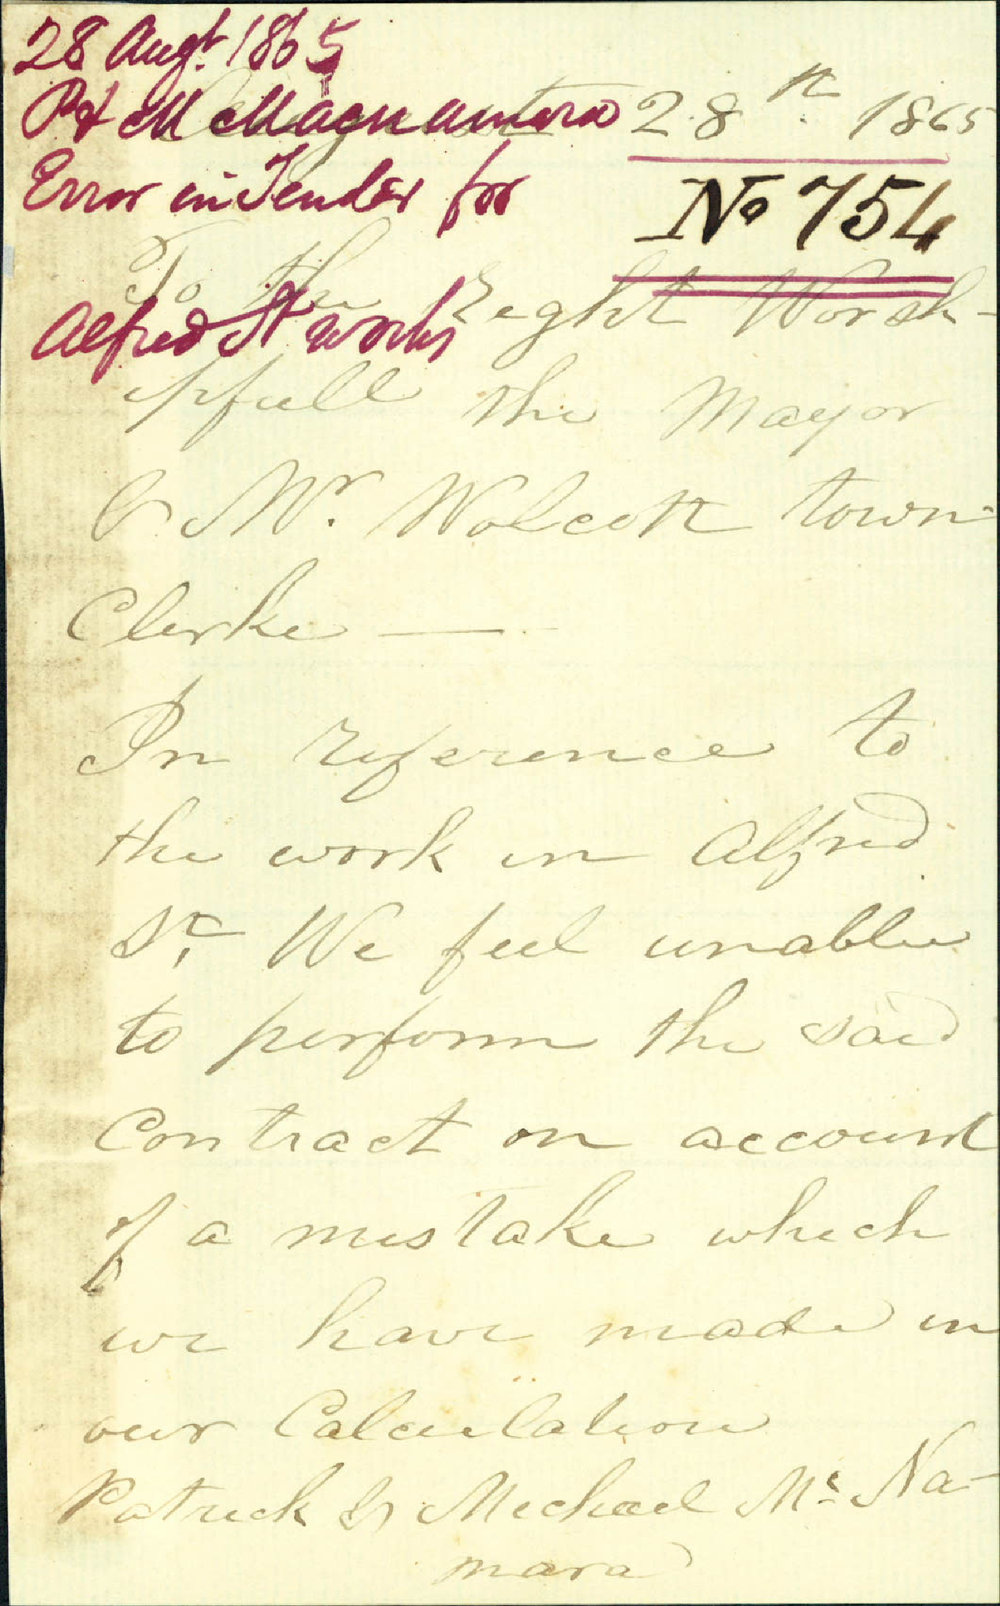 28 Augt. 1865
P & M McMagnamara
Error in Tender for
Alfred St works
August 28th. 1865
No 754
To the Right Worsh-
ipfull the Mayor
& Mr. Wolcott town-
Clerke —
In reference to
the work in Alfred
St. We feel unable
to perform the said
Contract on account
of a mistake which
we have made in
our Calculation
Patrick & Michael Mc Na-
mara